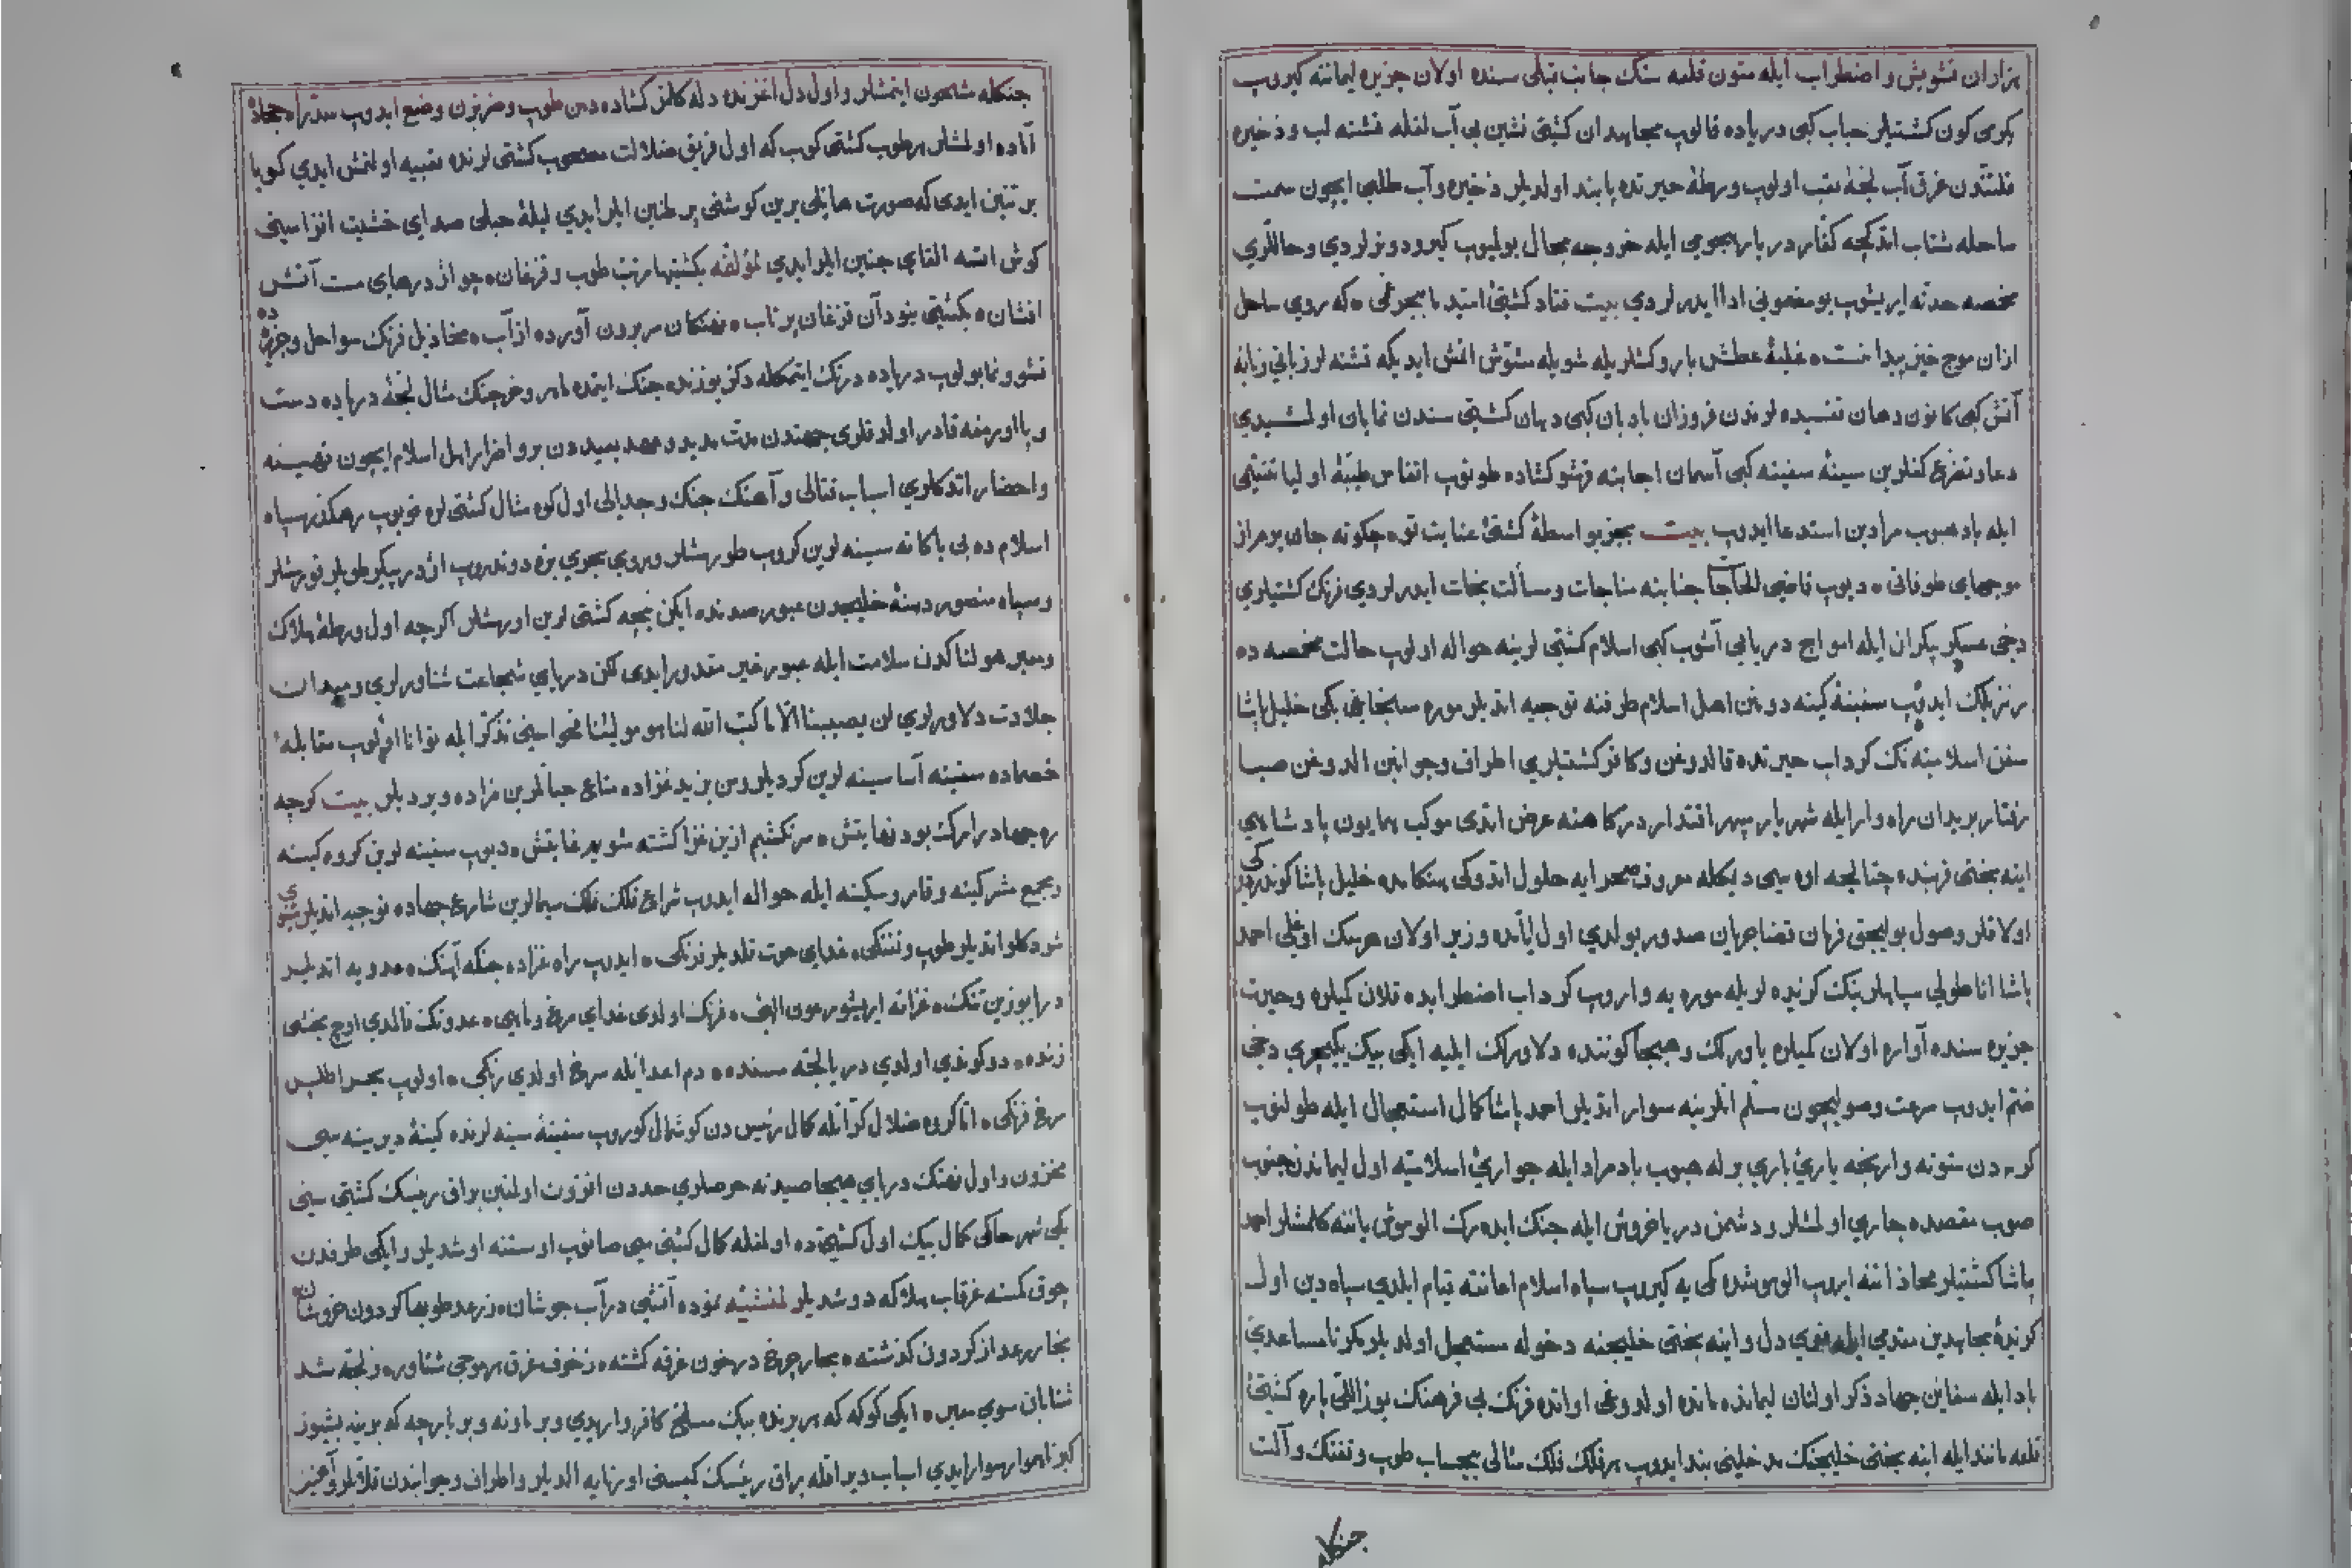 هزاران تشویش و اضطراب ایله متون قلعه سنك جانب قبلی سنده اولان جزیره لیماننه کیروب
یکرمی کون کشتیلر حباب کبی دریاده قالوب مجاهدان کشتی نشین بی آب لغله تشنه لب و ذخیره
قلتندن غرق آب لجۀ تعب اولوب ورطۀ حیرتده پابند اولدیلر ذخیره و آب طلبی ایچون سمت
ساحله شتاب اتدکجه کفار دریابار هجومی ایله خروجه مجال بولمیوب کیرو دونرلردی و حاللری
مخمصه حدنه ایریشوب بو مضمونی ادا ایدرلردی بیت فتاد کشتئ امید ما ببحر غمی که روی ساحل
ازان موج خیز پیدا نیست غلبۀ عطش یاروکشلریله شویله مشوش اتمش ایدیکه تشنه لر زبانی زبانه
آتش کبی کانون دهان تفسیده لرندن فروزان بادبان کبی دهان کشتی سندن نمایان اولمشیدی
دعا و تضرع کفلرین سینۀ سفینه کبی آسمان اجابته قرشو کشاده طوتوب انفاس طیبۀ اولیا
ایله باد هبوب مرادین استدعا ایدوب بیت بجز بواسطۀ کشتئ عنایت تو چکونه جان برم از
موجهای طوفانی دیوب قاضی الحاجات جنابنه مناجات و مسألت نجات ایدرلردی فرنك کشتیلری
دخی عسکر بیکران ایله امواج دریای آشوب کبی اسلام کشتی لرینه حواله اولوب حالت مخمصه ده
ایدوب سفینۀ کینه دونن اهل اسلام طرفنه توجیه اتدیلر موره سنجاغی بکی خلیل پاشا
سفن اسلامیه نك کرداب حیرتده قالدوغن و کافر کشتیلری اطراف و جوانبن الدوغن صبا
رفتار بریدان راه وار ایله شهریار سپهر اقتدار درکاهنه عرض اتدی موکب همایون پادشاهی
اینه بختی قربنده چتالجه اوه سی دیمکله معروف صحرایه حلول اتدوکی هنکامده خلیل پاشا کوندردوکی
اولاقلر وصول بولیجق فرمان قضا جریان صدور بولدی اول اثناده وزیر اولان هرسك اوغلی احمد
پاشا اناطولی سپاهلرینك کزنده لریله موره یه واروب کرداب اضطرابده قلان کمیلره و حیرت
جزیره سنده آواره اولان کمیلره یاورلك و هیجا کوننده دلاورلك ایلیه ایکی بیك یکیچری دخی
ضم ایدوب سرعت وصولیچون ستم اتلرینه سوار اتدیلر احمد پاشا کمال استعجال ایله طولنوب
کوردن متونه وارنجه یارئ باری بوله هبوب باد مراد ایله جوارئ اسلامیه اول لیماندن جنوب
صوب مقصده جاری اولمشلر و دشمن دریا خروش ایله جنك ایدرك الوموش یاننه کلمشلر احمد
پاشا کشتیلر محاذاتنه ایروب الوموشده کمی یه کیروب سپاه اسلام اعانتنه قیام ایلدی سپاه دین اول
کزیدۀ مجاهدین مقدمی ایله قوی دل و اینه بختی خلیجنه دخوله مستعجل اولدیلر مکر نامساعدئ
باد ایله سفاین جهاد ذکر اولنان لیمانده مانده اولدوغی اوانده فرنك بی فرهنك یوز اللی پاره کشتئ
قلعه مانند ایله اینه بختی خلیجنك مدخلینی بند ایدوب هر فلك فلك مثالی بیحساب طوپ و تفنك و آلت
جنکله
جنکله مشحون ایتمشلر و اول دل اغزنده دله کلمز کشاده دهن طوپ و ضربزن وضع ایدوب سد راه جهاده
آماده اولمشلر هر طوپ کشتی کوب که اول فریق ضلالت مصحوب کشتی لرنده تعبیه اولنمش ایدی کویا
بر تنین ایدی که صورت هایلی یرین کوشنی پر طنین ایلر ایدی لیلۀ حبلی صدای خشیت افزاسینی
کوش اتسه القای جنین ایلر ایدی لمؤلفه بکشتیها نهنك طوپ و قزغان چو اژدرهای مست آتش
افشان بکشتی بود آن قزغان پرتاب نهنکان سر برون آورده از آب مخاذیل فرنك سواحل و جزیره ده
نشو و نما بولوب دریاده درنك ایتمکله دکز یوزنده جنك ایتمده ماهر و خرچنك مثال لجۀ دریاده دست
و پا اورمغه قادر اولدقلری جهتدن مدت مدید و عهد بعیددن برو اضرار اهل اسلام ایچون تهیئه
و احضار اتدکلری اسباب قتالی و آهنك جنك و جدالی اول کوه مثال کشتی لره قویوب رهکذر سپاه
اسلامده بی باکانه سینه لرین کروب طورمشلر و روی بحری یره دوندروب اژدر پیکر طوپلر قورمشلر
و سپاه منصور دهنۀ خلیجدن عبور صددنده ایکن نیجه کشتی لرین اورمشلر اکرچه اول ورطۀ هلاك
و معبر هولناکدن سلامت ایله عبور غیر مقدور ایدی لکن دریای شجاعت شناورلری و میدان
جلادت دلاورلری لن یصیبنا الا ما کتب الله لنا هو مولینا فحواسینی تذکر ایله توانا اولوب مقابلۀ
خصمده سفینه آسا سینه لرین کردیلر و من یزید غزاده متاع جانلرین مزاده ویردیلر بیت کرچه
ره جهاد را مرك بود نهایتش سر نکشیم ازین غزا کشته شویم غایتش دیوب سفینه لرین کروه کینه
و مجمع مشرکینه وقار و سکینه ایله حواله ایدوب شراع فلك فلك سیمالرین شارع جهاده توجیه اتدیلر مثنوی
شررکلر اتدیلر طوپ و تفنکی غدای حوت قلدیلر فرنکی ایدوب راه غزاده جنکه آهنك عدویه اتدیلر
دریا یوزین تنك غزاته ایریشور عون الهی فرنك اولدی غدای مرغ و ماهی عدونك قالدی اوج بختی
زنده دوکوندی اولدی دریا لجه سنده دم اعدایله سرخ اولدی رنکی اولوب بحر اطلس
سرخ فرنکی اتا کروه ضلال کزانله کمال رئیس دن کوشمال کوروب سفینۀ سینه لرنده کینۀ دیرینه سی
مخزون و اول نهنك دریای هیجا صیدنه حرصلری حددن افزون اولمغین براق رئیسك کشتی سینی
یکی شهر حاکی کمال بیك اول کشتیده اولمغله کمال کشتی سی صانوب اوستنه اوشدیلر و ایکی طرفدن
چوق کسنه غرقاب هلاکه دوشدیلر لمنشئه نموده آتشی در آب جوشان ز رعد طوپها کردون خروشان
بخار رعد از کردون کذشته بحار چرخ در خون غرقه کشته ز خوف غرق هر موجی شناور ز لجه شد
شتابان سوی معبر ایکی کوکه که هر برنده بیك مسلح کافر وار ایدی و بر ماونه و بر بارچه که برینه بشیوز
کبر ناهموار سوار ایدی اسباب دیر اتله براق رئیسك کمیسنی اورتایه الدیلر و اطراف و جوانبدن